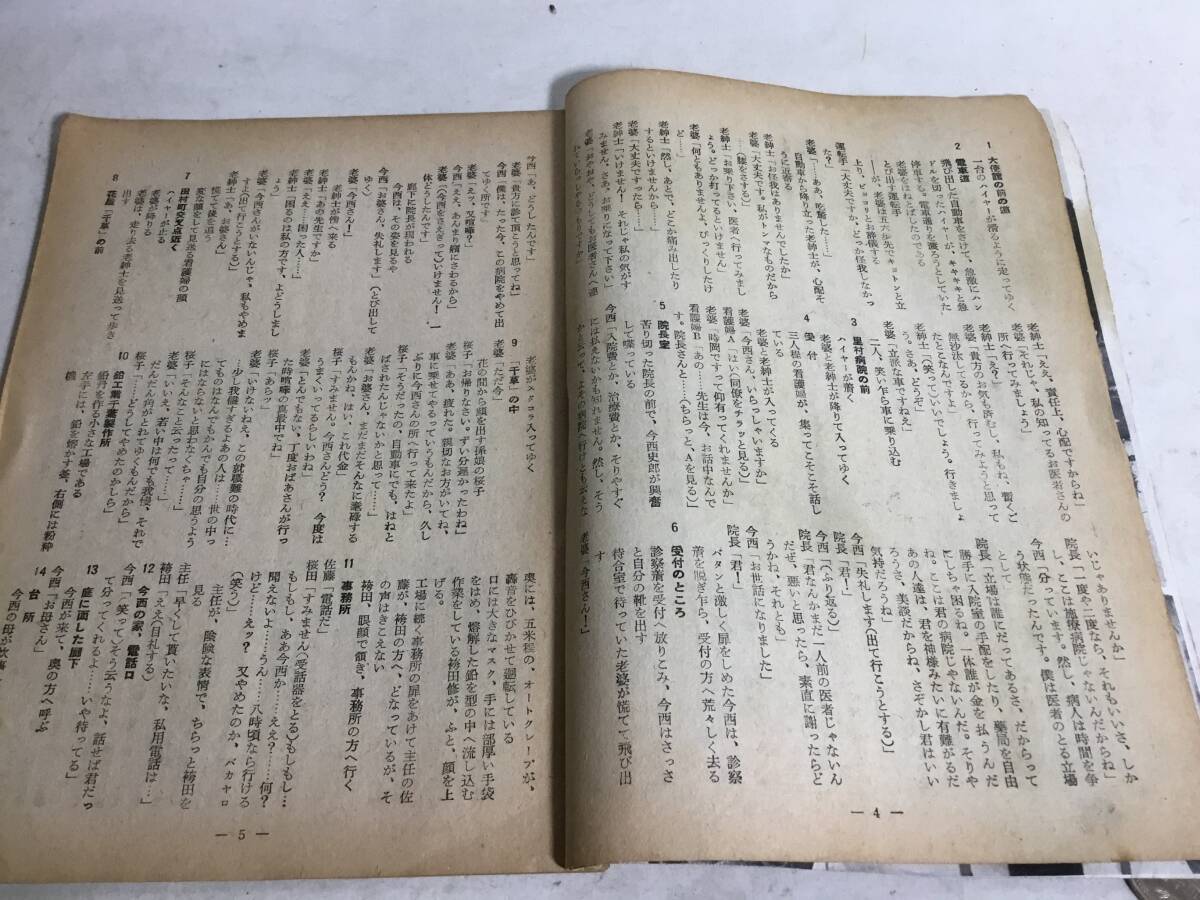 1 大使館の前の道
一台のハイヤーが滑るように走ってゆく
2 電車道
飛び出した自動車をさけて、急激にハン
ドルを切ったハイヤーが、キキキキと急
停車する。電車通りを渡ろうとしていた
老婆をはねとばしたのである
とび出す運転手
――が、老婆は五六歩先でキョトンと立
上り、ピョコリとお辞儀する
運転手「大丈夫ですか、どっか怪我しなかっ
た？」
老婆「……ああ、吃驚した」
自動車から降り立った老紳士が、心配そ
うに近寄る
老紳士「お怪我はありませんでしたか」
老婆「大丈夫です。私がトンマなものだから
……(膝をさする)
老紳士「お乗り下さい、医者へ行ってみまし
ょう。どっか打ってるといけませんから」
老婆「何ともありませんよ、びっくりしたけ
ど……」
老紳士「然し、あとで、どこか痛み出したり
するといけませんから……」
老婆「大丈夫ですったら……」
老紳士「いけません！それじゃ私の気がす
みません、さあ、お乗りになって下さい」
老紳士「ええ、責任上、心配ですからね」
老婆「それじゃ、私の知ってるお医者さんの
所へ行ってみましょう」
老紳士「貴方のお気も済むし、私もね、暫くご
無沙汰してるから、行ってみようと思って
たとこなんですよ」
老紳士「(笑って)いいでしょう。行きましょ
う。さあ、どうぞ」
老婆「立派な車ですねえ」
二人、笑い乍ら車に乗り込む
3 里村病院の前
ハイヤーが着く
老婆と老紳士が降りて入ってゆく
4 受付
三人程の看護婦が、集ってこそこそ話し
ている
老婆と老紳士が入ってくる
老婆「今西さん、いらっしゃいますか」
看護婦A「はい」(同僚をチラッと見る)
老婆「時岡ですって仰有ってくれませんか」
看護婦B「あの……先生は今、お話中なんで
す。院長さんと……(ちらっと、Aを見る)」
5 院長室
苦り切った院長の前で、今西史郎が興奮
して喋っている
今西「入院費とか、治療費とか、そりやすぐ
には払えないかも知れません。然し、そう
かと云って、よその病院へ行けともがとな
いじゃありませんか」
院長「一度や二度なら、それもいいさ、しか
し、ここは施療病院じゃないんだからね」
今西「分っています。然し、病人は時間を争
う状態だったんです。僕は医者のとる立場
として……」
院長「立場は誰にだってあるさ、だからって
勝手に入院室の手配をしたり、薬局を自由
にしちゃ困るね。一体誰が金を払うんだ
ね。ここは君の病院じゃないんだ。そりや
あの人達は、君を神様みたいに有難がるだ
ろうさ、美談だからね、さぞかし君はいい
気持だろうね」
今西「失礼します」(出て行こうとする)
院長「君！」
今西「(ふり返る)」
院長「君なんかまだ一人前の医者じゃないん
だぜ、悪いと思ったら、素直に謝ったらど
うかね、それとも」
今西「お世話になりました」
院長「君！」
バタンと激しく扉をしめた今西は、診察
着を脱ぎ乍ら、受付の方へ荒々しく去る
6 受付のところ
診察着を受付へ放りこみ、今西はさっさ
と自分の靴を出す
待合室で待っていた老婆が慌てて飛び出
す
老婆「今西さん！」
― 4 ―
今西「あ、どうしたんです」
老婆「貴方に診て頂こうと思ってね」
今西「僕は、たった今、この病院をやめて出
てゆく所です」
老婆「えッ、又喧嘩？」
今西「ええ、あんまり癪にさわるから」
老婆「(今西をさえぎって)いけません！一
体どうしたんです」
廊下に院長が現われる
今西は、その姿を見るや
今西「お婆さん、失礼します」(とび出して
ゆく)
老婆「今西さん！」
老紳士が傍へ来る
老紳士「あの先生ですか」
老婆「ええ……困った人……」
老紳士「困るのは私の方です、よどうしまし
老婆「今西さんがいないんじゃ、私もやめま
すよ」(出て行こうとする)
老紳士「あ、お婆さん」
慌てて後を追う
変な顔をして見送る看護婦の顔
7 田村町交叉点近く
ハイヤーが止る
老婆が降りる
老婆は、走り去る老紳士を見送って歩き
8 花屋「千草」の前
老婆がスタコラ入ってゆく
9 「千草」の中
老婆「ただ今」
花の間から顔を出す孫娘の桜子
桜子「お帰りなさい。ずい分遅かったわね」
老婆「ああ、疲れた。親切なお方がいてね、
車に乗せてやるっていうもんだから、久し
ぶりに今西さんの所へ行って来たよ」
桜子「そうだったの、自動車にでも、はねと
ばされたんじゃないかと思って……」
老婆「お婆さん、まだまだそんなに耄碌する
もんかね、はい、これ代金」
桜子「すみません。今西さんどう？ 今度は
うまくいってるらしいわね」
老婆「とんでもない、丁度おばあさんが行っ
た時喧嘩の真最中でね」
桜子「あらッ」
老婆「いけないねえ、この就職難の時代に…
…少し我儘すぎるよあの人は……世の中っ
てものはなんでもかんでも自分の思うよう
にはならないと思わなくちゃ……」
桜子「そんなこと云ったって……」
老婆「いいえ、若い中は何でも我慢、それで
だんだん角がとれてゆくもんだから」
桜子「……どうしてやめたのかしら」
10 鉛工業千葉製作所
鉛丹を作る小さな工場である
左手には、鉛を熔かす釜、右側には粉粋
機
奥には、五米程の、オートクレーブが、
轟音をひびかせて廻転している
口には大きなマスク、手には部厚い手袋
をはめ、熔解した鉛を型の中へ流し込む
作業をしている袴田修が、ふと、顔を上
げる。
工場に続く事務所の扉をあけて主任の佐
藤が、袴田の方へ、どなっているが、そ
の声はきこえない
袴田、眼顔で頷き、事務所の方へ行く
11 事務所
佐藤「電話だ」
桜田「すみません(受話器をとる)もしもし…
もしもし、ああ今西か……ええ？……何？
聞えないよ……うん……八時頃なら行ける
けど……えッ？ 又やめたのか、バカヤロ
(笑う)
主任が、陰険な表情で、ちらっと袴田を
見る
主任「早くして貰いたいな、私用電話は…」
袴田「ええ(目礼する)
12 今西の家、電話口
今西「(笑って)そう云うなよ、話せば君だっ
て分ってくれるよ……いや待ってる」
13 庭に面した廊下
今西が来て、奥の方へ呼ぶ
今西「お母さん」
14 台所
― 5 ―